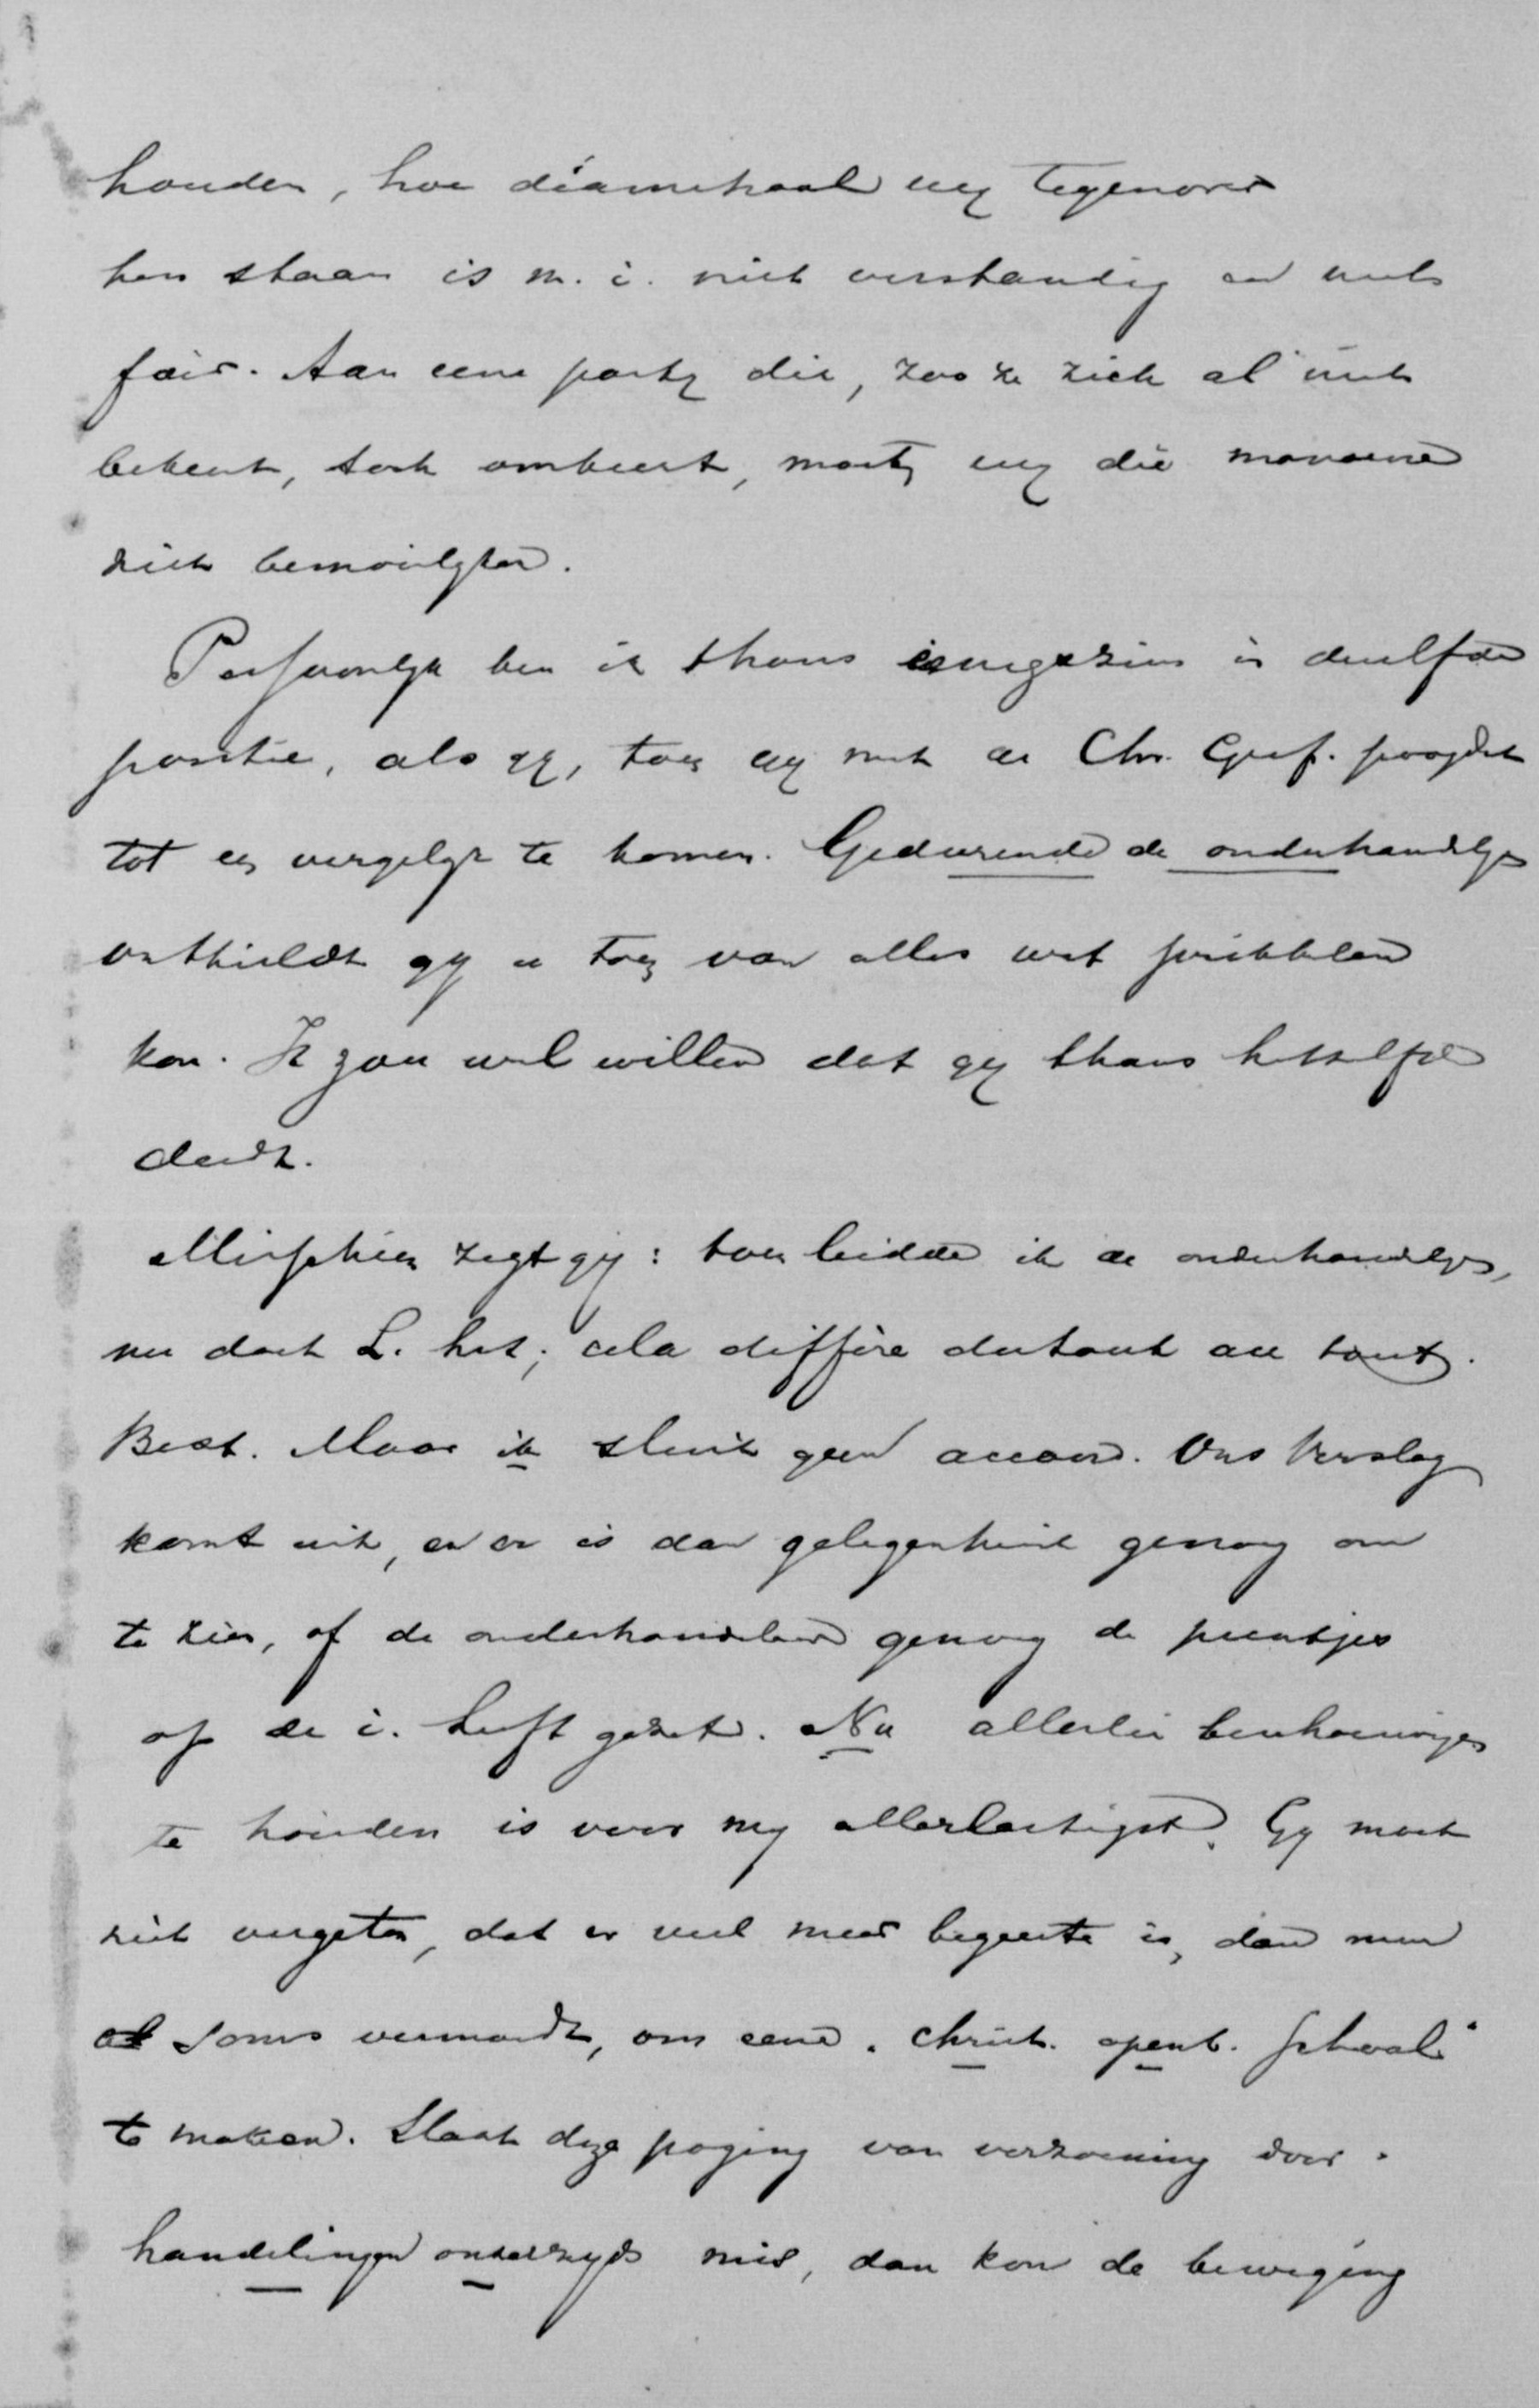 houden, hoe diametraal wij tegenover
hen staan is m. i. niet verstandig en niet
fair. Aan eene partij die, zoo ze zich al niet
bekeert, toch omkeert, moet wij die manoeuvre
niet bemoeilijken.
Persoonlijk ben ik thans eenigszins in dezelfde
positie, als gij, toen gij met de Chr. Geref. poogdet
tot een vergelijk te komen. Gedurende de onderhandelgn
onthieldt gij u toen van alles wat prikkelen
kon. Ik zou wel willen dat gij thans hetzelfde
deedt.
Misschien zegt gij: toen leidde ik de onderhandelgn,
nu doet L. het; cela diffère du tout au tout.
Best. Maar ik sluit geen accoord. Ons Verslag
komt uit, en er is dan gelegenheid genoeg om
te zien, of de onderhandelaar genoeg de puntjes
op de i. heeft gezet. Nu allerlei beschouwingen
te houden is voor mij allerlastigst. Gij moet
niet vergeten, dat er veel meer begeerte is, dan men
al soms vermoedt, om eene "christ. openb. school"
te maken. Slaat deze poging van verzoening door
handelingen onderzijds mis, dan kon de beweging